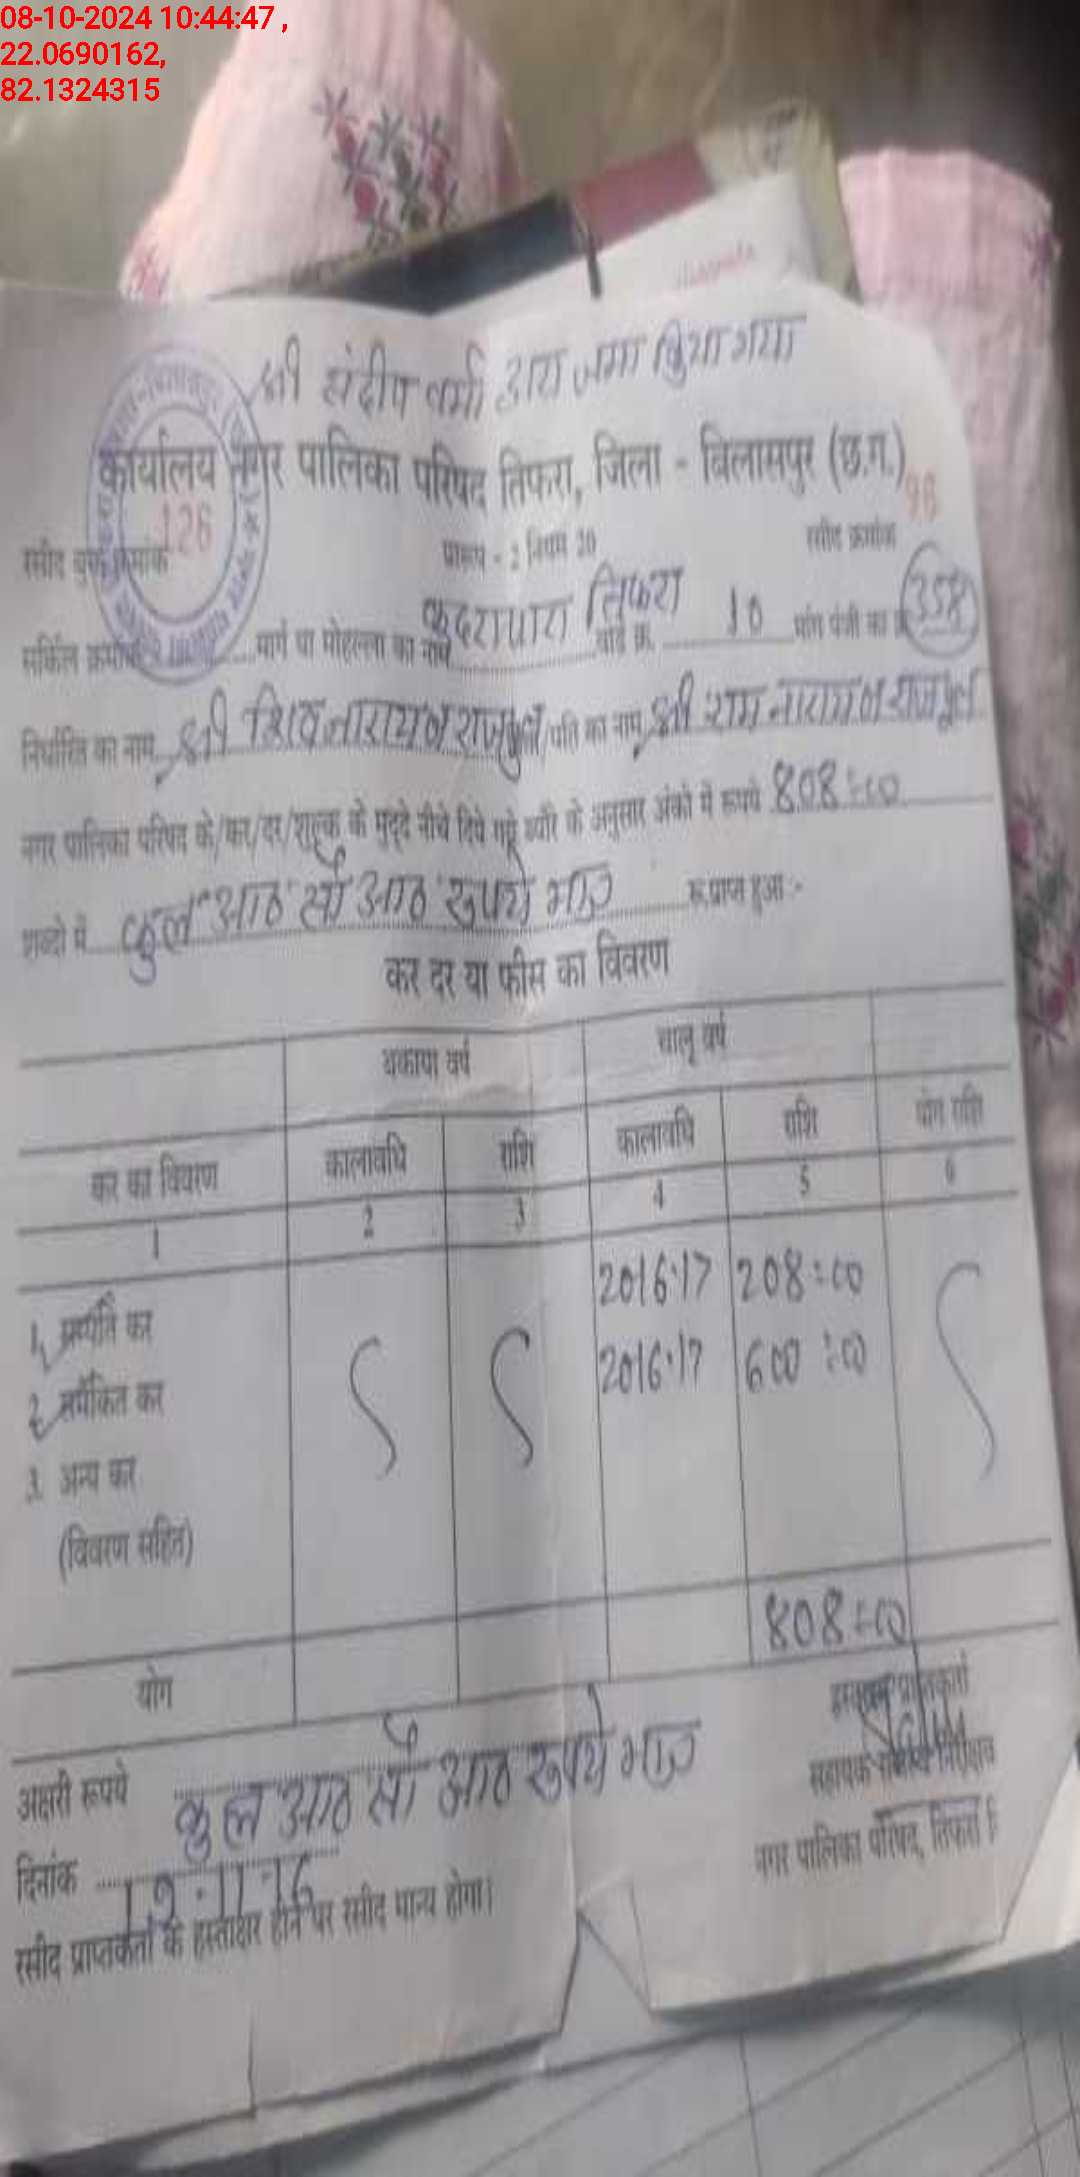 08-10-2024 10:44:47 ,
22.0690162,
82.1324315
श्री संदीप वर्मा द्वारा जमा किया गया
कार्यालय नगर पालिका परिषद तिफरा, जिला - बिलासपुर (छ.ग.)
रसीद बुक क्रमांक 126 प्रारूप - 2 नियम 20 रसीद क्रमांक 98
सर्किल क्रमांक मार्ग या मोहल्ला का नाम तिफरा वार्ड क्र. 10 मांग पंजी का क्र 358
निर्धारित का नाम श्री शिवनारायण राजपूत /पति का नाम श्री राम नारायण राजपूत
नगर पालिका परिषद के/कर/दर/शुल्क के मुद्दे नीचे दिये गये ब्यौरे के अनुसार अंको में रूपये 808=00
शब्दो में कुल आठ सौ आठ रुपये मात्र रू प्राप्त हुआ :-
कर दर या फीस का विवरण
बकाया वर्ष चालू वर्ष
कर का विवरण कालावधि राशि कालावधि राशि योग राशि
1 2 3 4 5 6
1. सम्पत्ति कर 2016-17 208=00
2. समेकित कर 2016-17 600=00
3. अन्य कर
(विवरण सहित)
योग 808=00
हस्ताक्षर प्राप्तकर्ता
अक्षरी रूपये कुल आठ सौ आठ रूपये मात्र
सहायक राजस्व निरीक्षक
नगर पालिका परिषद, तिफरा
दिनांक 19-11-16
रसीद प्राप्तकर्ता के हस्ताक्षर होने पर रसीद मान्य होगा।